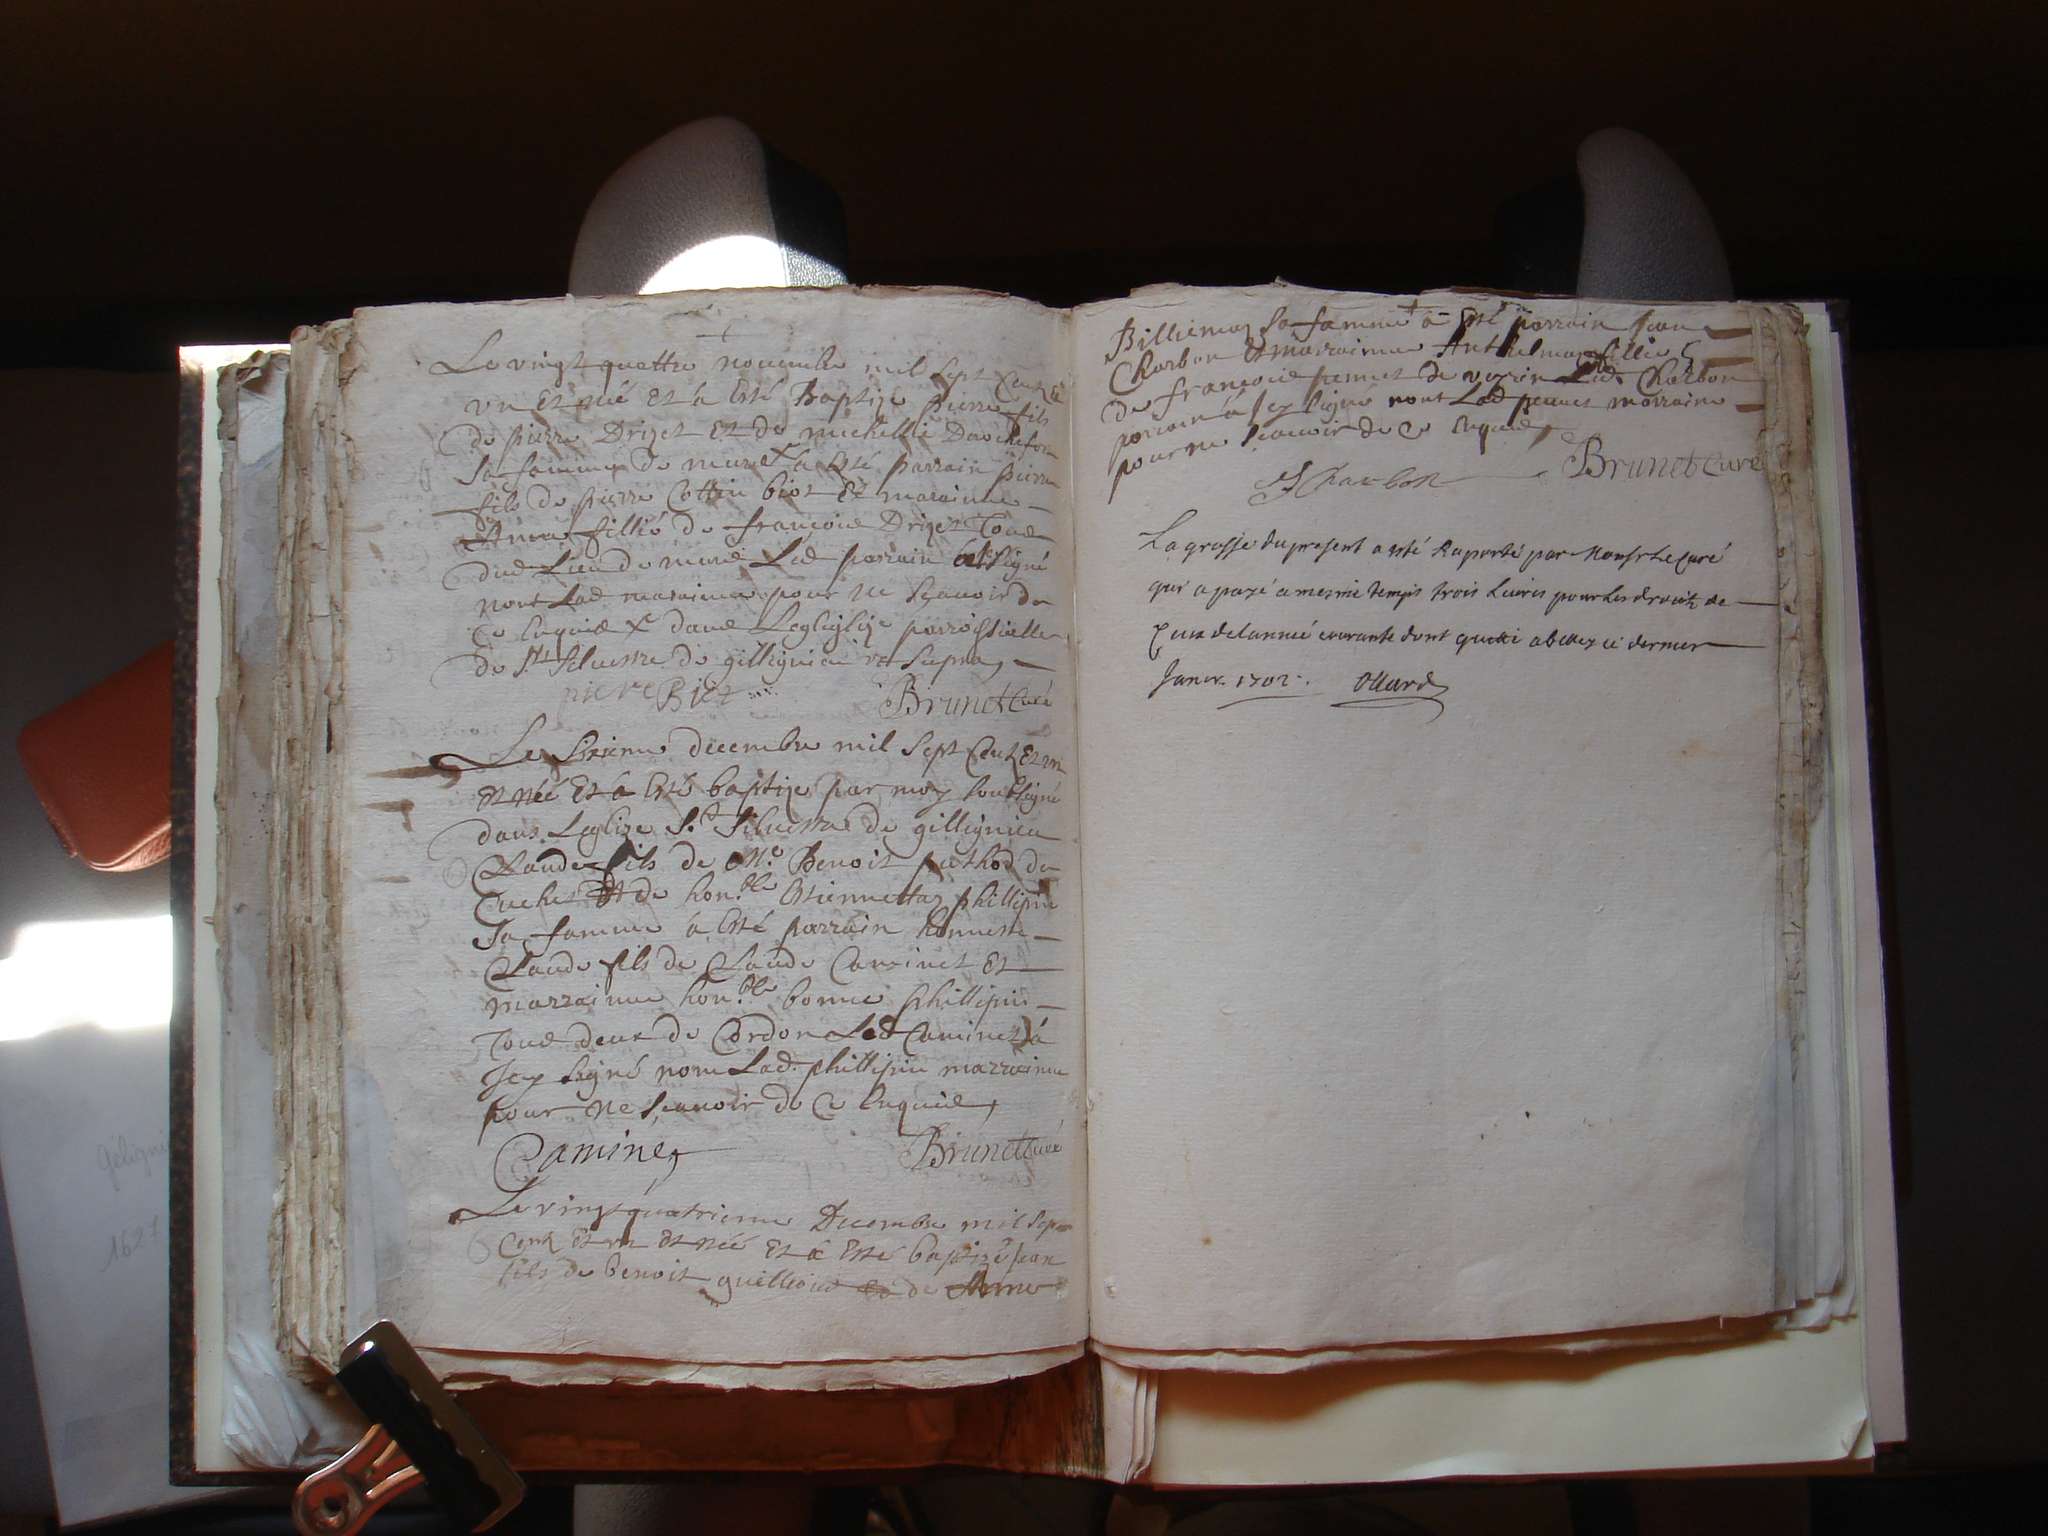 Le vingt quattre nouembre mil sept Cent Et
vn Et né Et a esté Baptize pierre fils
de pierre Drizet Et de michellie Derochefor
sa famme de mure a esté parrain pierre
fils de pierre Cottin biot Et maraine
Anna fillie de francois Drizet Tous
dud Lieu de mure Led parrain a signé
nont Lad maraine pour ne scauoir de
Ce Enquis dans Leglize parroissialle
de st siluestre de gillignieu vt supra
piere Biot
Brunet Curé
Le sixieme decembre mil sept Cent Et vn
Et né Et a esté baptize par moy soubsigné
dans Leglize St siluestre de gillignieu
Claude fils de Me Benoit puthod de
Cuchet Et de honble Estiennettaz phillipin
sa famme a esté parrain honneste
Claude fils de Claude Caminet Et
marraine honble bonne phillipin
Tous deux de Cordon Led Caminet a
Icy signé non Lad. phillipin marraine
pour ne scauoir de Ce Enquis,
Caminet
Brunet Curé
Le vingt quatrieme Decembre mil sept
Cent Et vn Et né Et a Esté baptizé Jean
fils de benoit guillion de Anne
Billiemaz sa famme a Esté parrain Jean
Charbon Et marraine Anthelmaz fillie
de francois pennet de Led. Charbon
parrain a Icy signé nont Lad pennet marraine
pour ne scauoir de Ce Enquis,
J Charbon
Brunet Curé
La grosse du present a esté Raporté par Monsr Le Curé
qui a payé a mesme temps trois Liures pour Les droits de
deLannée courante dont quitté a belley ce dernier
Janv. 1702. Ollard
Géligni
1627